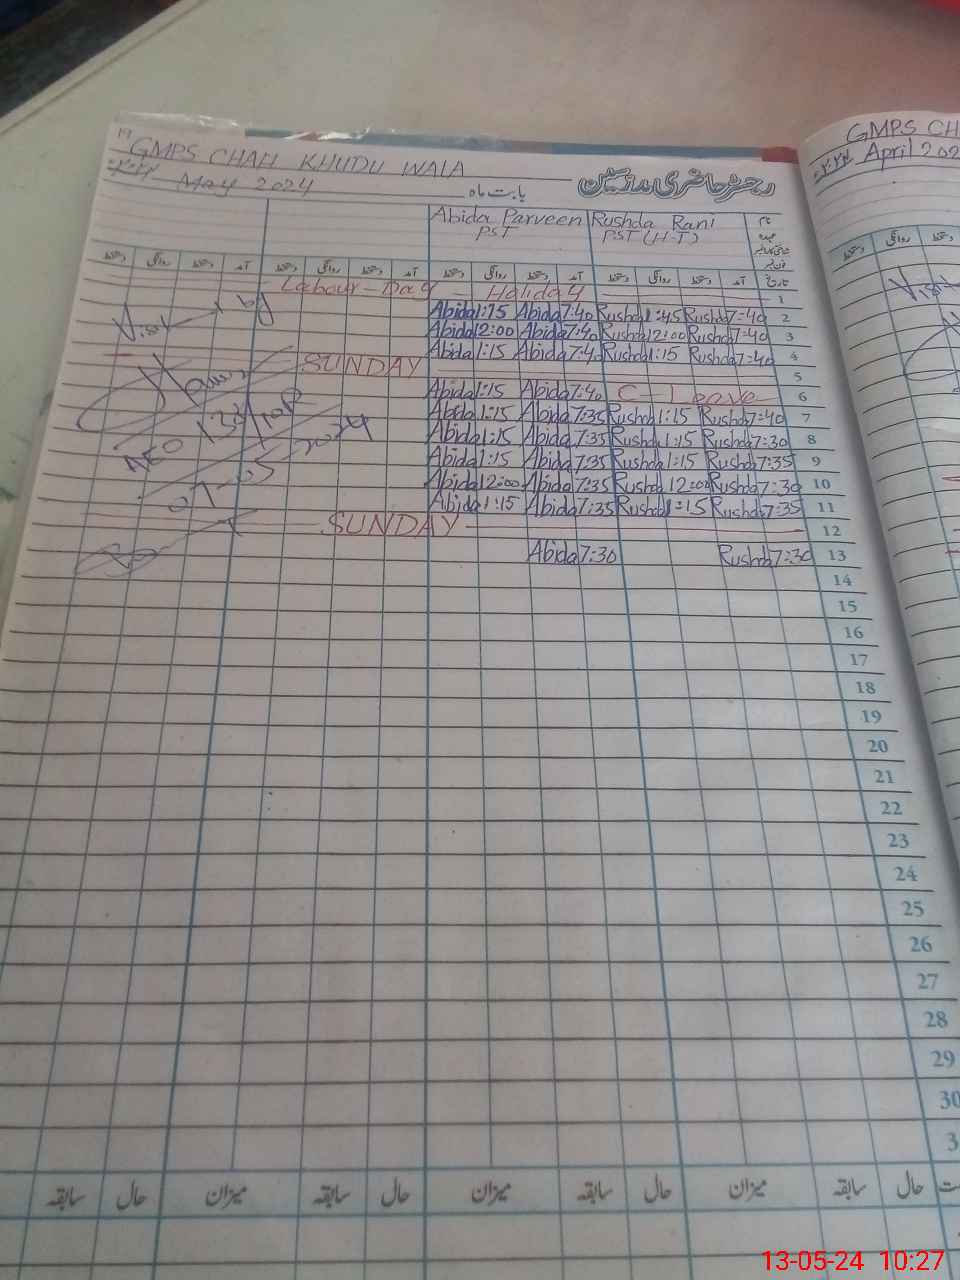 19
GMPS CHAH KHUDU WALA
رجسٹر حاضری مدرسین
بابت ماہ May 2024
Abida Parveen Rushda Rani نام
PST PST (H-T) عہدہ
دستخط روانگی دستخط آمد دستخط روانگی دستخط آمد دستخط روانگی دستخط آمد دستخط روانگی دستخط آمد تاریخ
Labour-Day - Holiday 1
Abida 1:15 Abida 7:40 Rushda 1:45 Rushda 7:40 2
Abida 12:00 Abida 7:40 Rushda 12:00 Rushda 7:40 3
Abida 1:15 Abida 7:40 Rushda 1:15 Rushda 7:40 4
SUNDAY 5
Abida 1:15 Abida 7:40 C-Leave 6
Abida 1:15 Abida 7:35 Rushda 1:15 Rushda 7:40 7
Abida 1:15 Abida 7:35 Rushda 1:15 Rushda 7:30 8
Abida 1:15 Abida 7:35 Rushda 1:15 Rushda 7:35 9
Abida 12:00 Abida 7:35 Rushda 12:00 Rushda 7:30 10
Abida 1:15 Abida 7:35 Rushda 1:15 Rushda 7:35 11
SUNDAY 12
Abida 7:30 Rushda 7:30 13
14
15
16
17
18
19
20
21
22
23
24
25
26
27
28
29
30
3
سابقہ حال میزان سابقہ حال میزان سابقہ حال میزان سابقہ حال
Visit by
AEO
07-05-2024
GMPS CH
April 202
روانگی
Visi
13-05-24 10:27